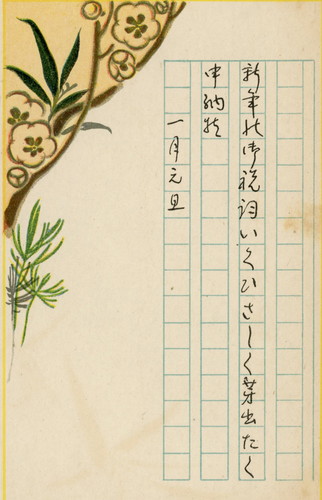 新年の御祝詞いく久しく芽出たく
申納候
一月元旦